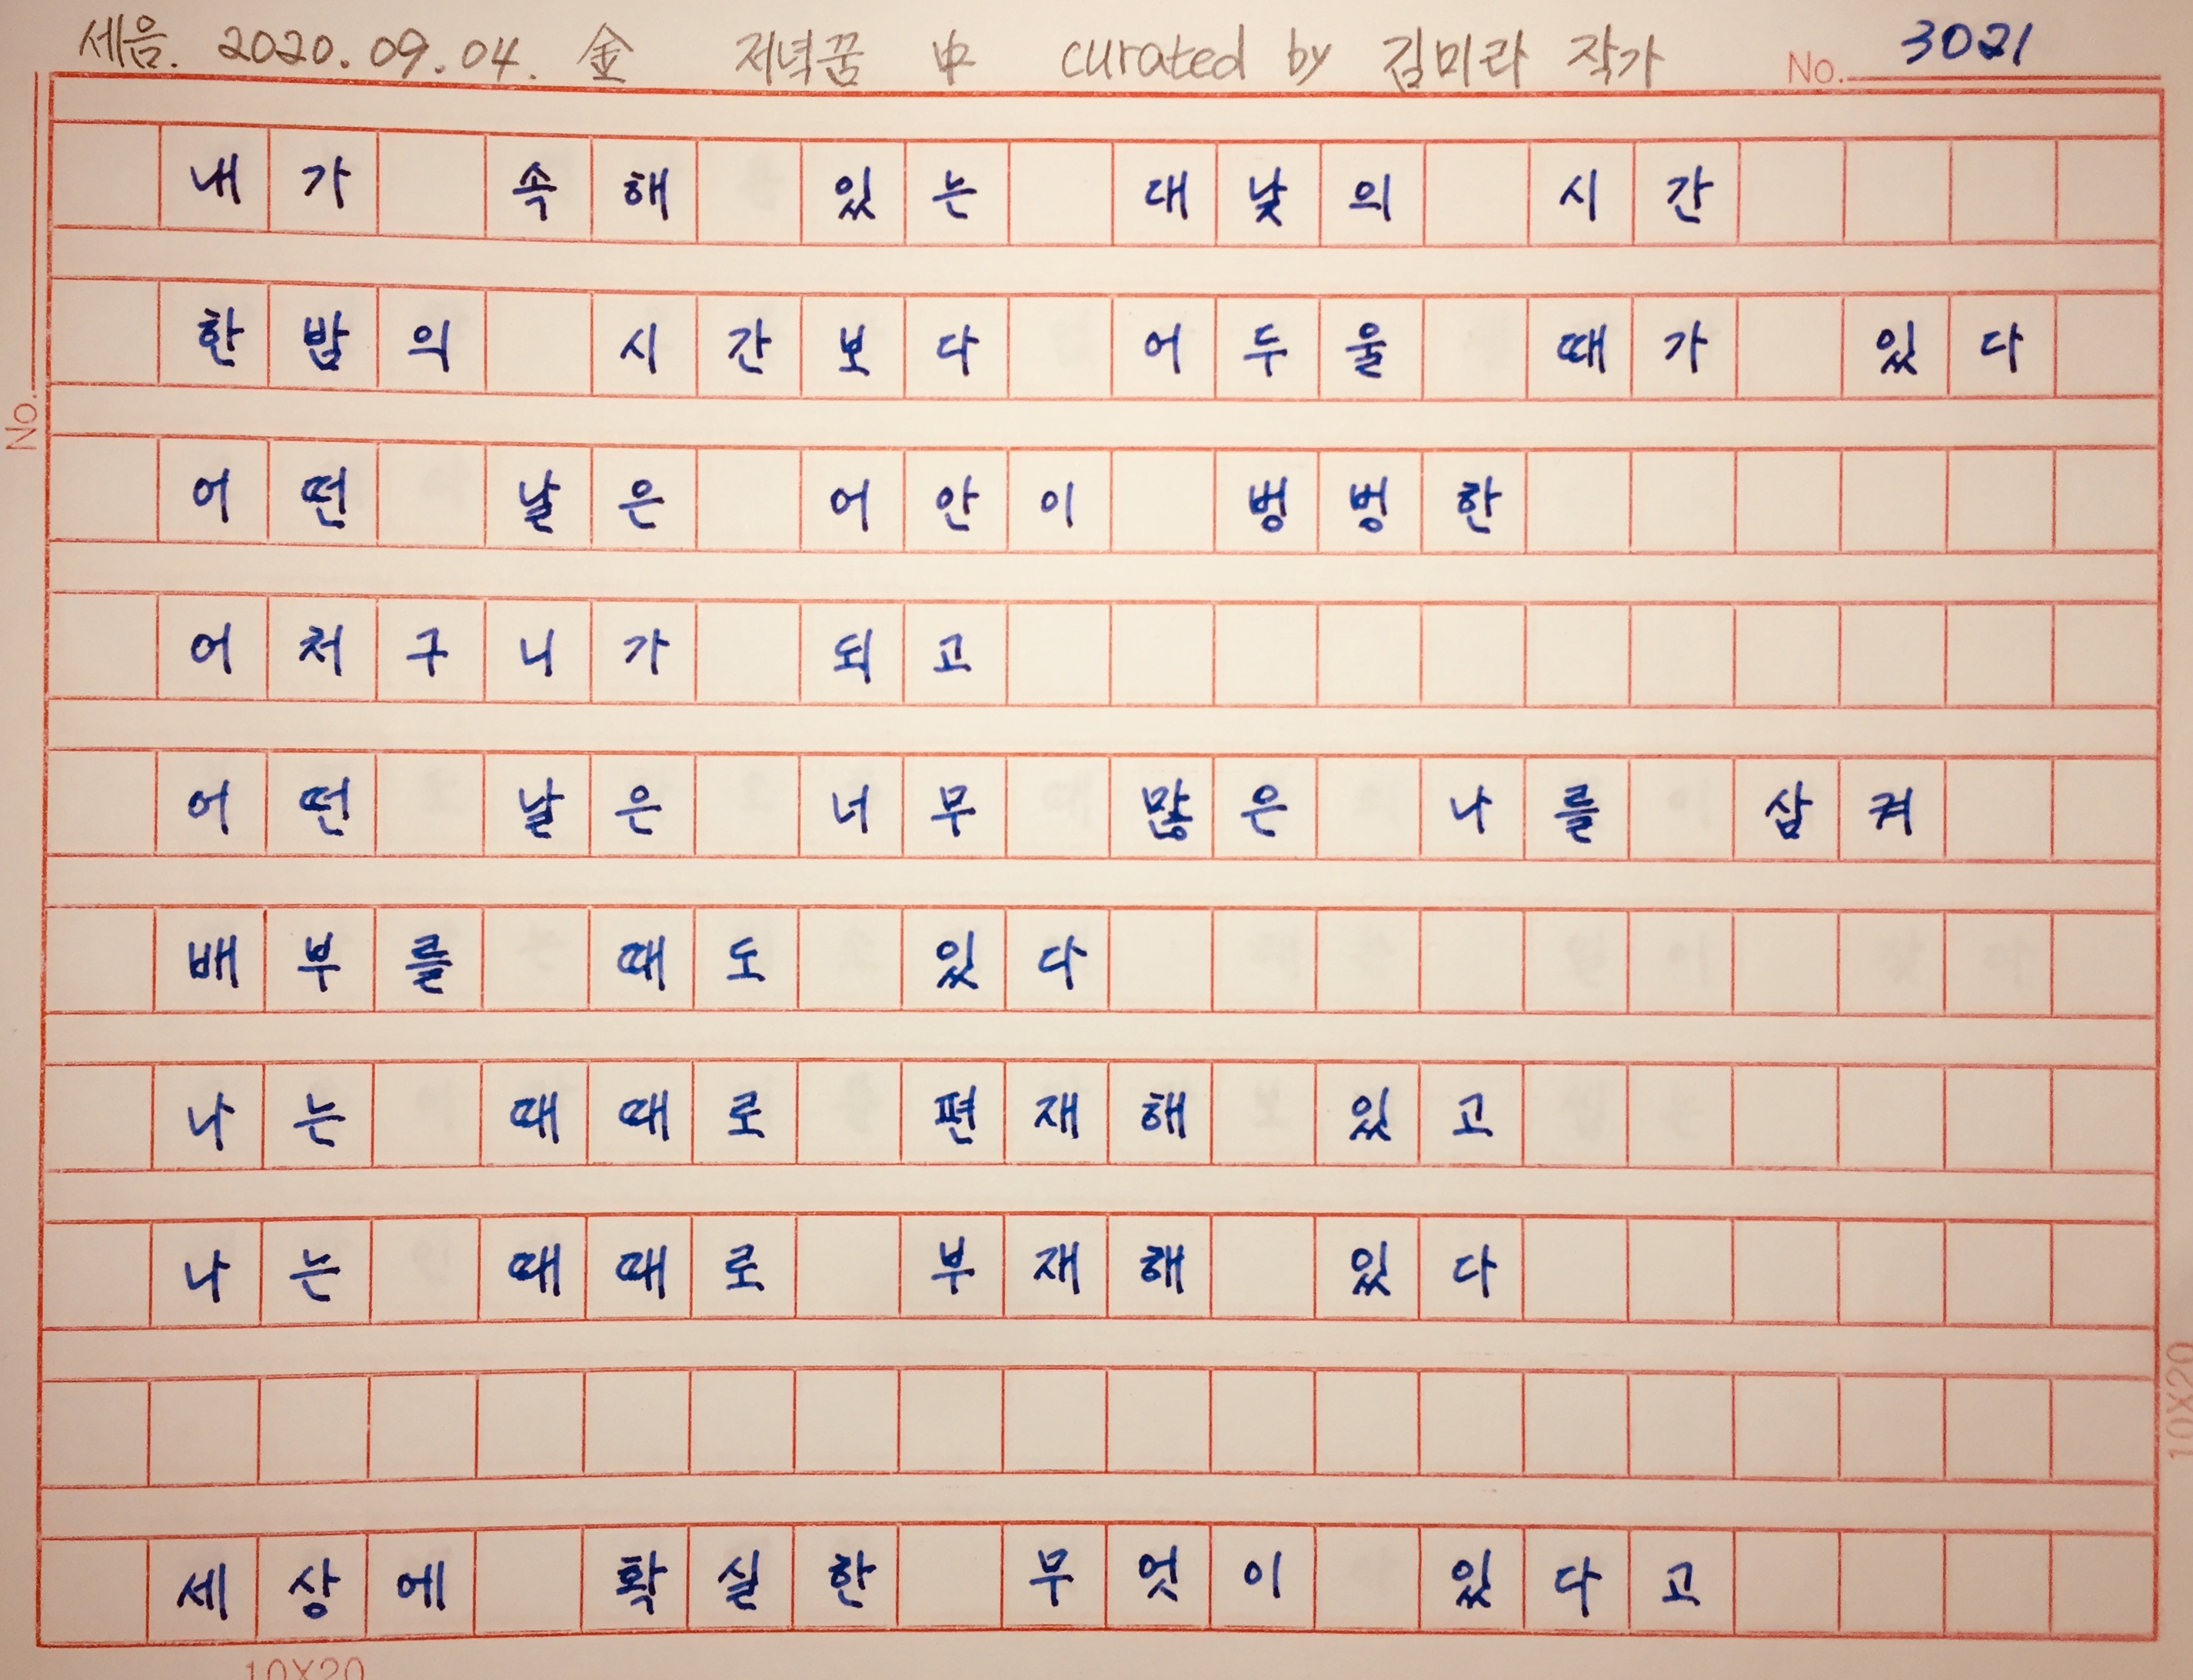 세음. 2020.09.04. 金 저녁꿈 中 curated by 김미라 작가 No. 3021
내가 속해 있는 대낮의 시간
한밤의 시간보다 어두울 때가 있다
No.
어떤 날은 어안이 벙벙한
어처구니가 되고
어떤 날은 너무 많은 나를 삼켜
배부를 때도 있다
나는 때때로 편재해 있고
나는 때때로 부재해 있다
10X20
세상에 확실한 무엇이 있다고
10X20